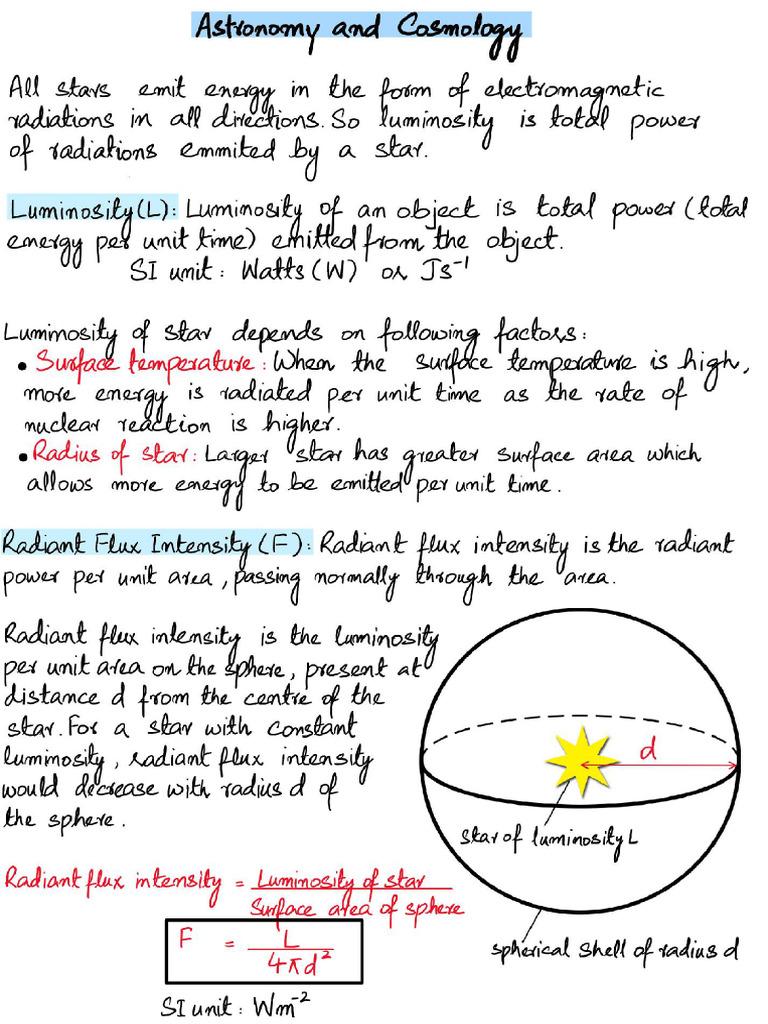 Astronomy and Cosmology
All stars emit energy in the form of electromagnetic
radiations in all directions. So luminosity is total power
of radiations emmited by a star.
Luminosity(L): Luminosity of an object is total power (total
energy per unit time) emitted from the object.
SI unit: Watts (W) or Js⁻¹
Luminosity of star depends on following factors:
• Surface temperature: When the surface temperature is high,
more energy is radiated per unit time as the rate of
nuclear reaction is higher.
• Radius of star: Larger star has greater surface area which
allows more energy to be emitted per unit time.
Radiant Flux Intensity (F): Radiant flux intensity is the radiant
power per unit area, passing normally through the area.
Radiant flux intensity is the luminosity
per unit area on the sphere, present at
distance d from the centre of the
star. For a star with constant
luminosity, radiant flux intensity
would decrease with radius d of
the sphere.
d
star of luminosity L
spherical shell of radius d
Radiant flux intensity = Luminosity of star
Surface area of sphere
F = L
4πd²
SI unit: Wm⁻²